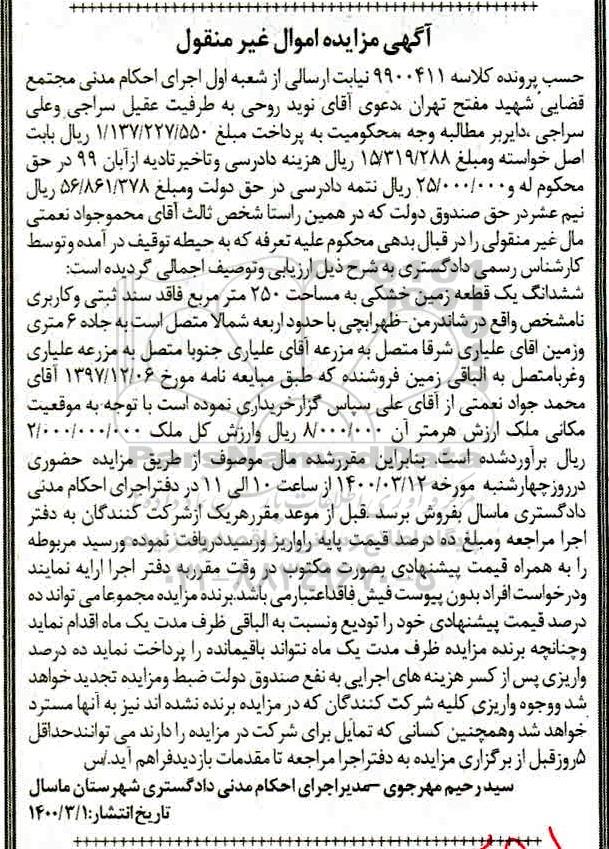 آگهی مزایده اموال غیر منقول
حسب پرونده کلاسه ۹۹۰۰۴۱۱ نیابت ارسالی از شعبه اول اجرای احکام مدنی مجتمع
قضایی شهید مفتح تهران ،دعوی آقای نوید روحی به طرفیت عقیل سراجی وعلی
سراجی ،دایربر مطالبه وجه ،محکومیت به پرداخت مبلغ ۱/۱۳۷/۲۲۷/۵۵۰ ریال بابت
اصل خواسته ومبلغ ۱۵/۳۱۹/۲۸۸ ریال هزینه دادرسی وتاخیرتادیه ازآبان ۹۹ در حق
محکوم له و۲۵/۰۰۰/۰۰۰ ریال نتمه دادرسی در حق دولت ومبلغ ۵۶/۸۶۱/۳۷۸ ریال
نیم عشردر حق صندوق دولت که در همین راستا شخص ثالث آقای محموجواد نعمتی
مال غیر منقولی را در قبال بدهی محکوم علیه تعرفه که به حیطه توقیف در آمده وتوسط
کارشناس رسمی دادگستری به شرح ذیل ارزیابی وتوصیف اجمالی گردیده است:
ششدانگ یک قطعه زمین خشکی به مساحت ۲۵۰ متر مربع فاقد سند ثبتی وکاربری
نامشخص واقع در شاندرمن-ظهرابچی با حدود اربعه شمالا متصل است به جاده ۶ متری
وزمین اقای علیاری شرقا متصل به مزرعه آقای علیاری جنوبا متصل به مزرعه علیاری
وغربامتصل به الباقی زمین فروشنده که طبق مبایعه نامه مورخ ۱۳۹۷/۱۲/۰۶ آقای
محمد جواد نعمتی از آقای علی سپاس گزارخریداری نموده است با توجه به موقعیت
مکانی ملک ارزش هرمتر آن ۸/۰۰۰/۰۰۰ ریال وارزش کل ملک ۲/۰۰۰/۰۰۰/۰۰۰
ریال برآوردشده است بنابراین مقررشده مال موصوف از طریق مزایده حضوری
درروزچهارشنبه مورخه ۱۴۰۰/۰۳/۱۲ از ساعت ۱۰ الی ۱۱ در دفتراجرای احکام مدنی
دادگستری ماسال بفروش برسد قبل از موعد مقررهریک ازشرکت کنندگان به دفتر
اجرا مراجعه ومبلغ ده درصد قیمت پایه راواریز ورسیددریافت نموده ورسید مربوطه
را به همراه قیمت پیشنهادی بصورت مکتوب در وقت مقرربه دفتر اجرا ارایه نمایند
ودرخواست افراد بدون پیوست فیش فاقداعتبارمی باشد.برنده مزایده مجموعا می تواند ده
درصد قیمت پیشنهادی خود را تودیع ونسبت به الباقی ظرف مدت یک ماه اقدام نماید
وچنانچه برنده مزایده ظرف مدت یک ماه نتواند باقیمانده را پرداخت نماید ده درصد
واریزی پس از کسر هزینه های اجرایی به نفع صندوق دولت ضبط ومزایده تجدید خواهد
شد ووجوه واریزی کلیه شرکت کنندگان که در مزایده برنده نشده اند نیز به آنها مسترد
خواهد شد وهمچنین کسانی که تمایل برای شرکت در مزایده را دارند می توانندحداقل
۵روزقبل از برگزاری مزایده به دفتراجرا مراجعه تا مقدمات بازدیدفراهم آید./س
سید رحیم مهرجوی -مدیراجرای احکام مدنی دادگستری شهرستان ماسال
تاریخ انتشار:۱۴۰۰/۳/۱
ParsNamadData
۰۲۱-۸۸۳۴۹۶۷۰-۵